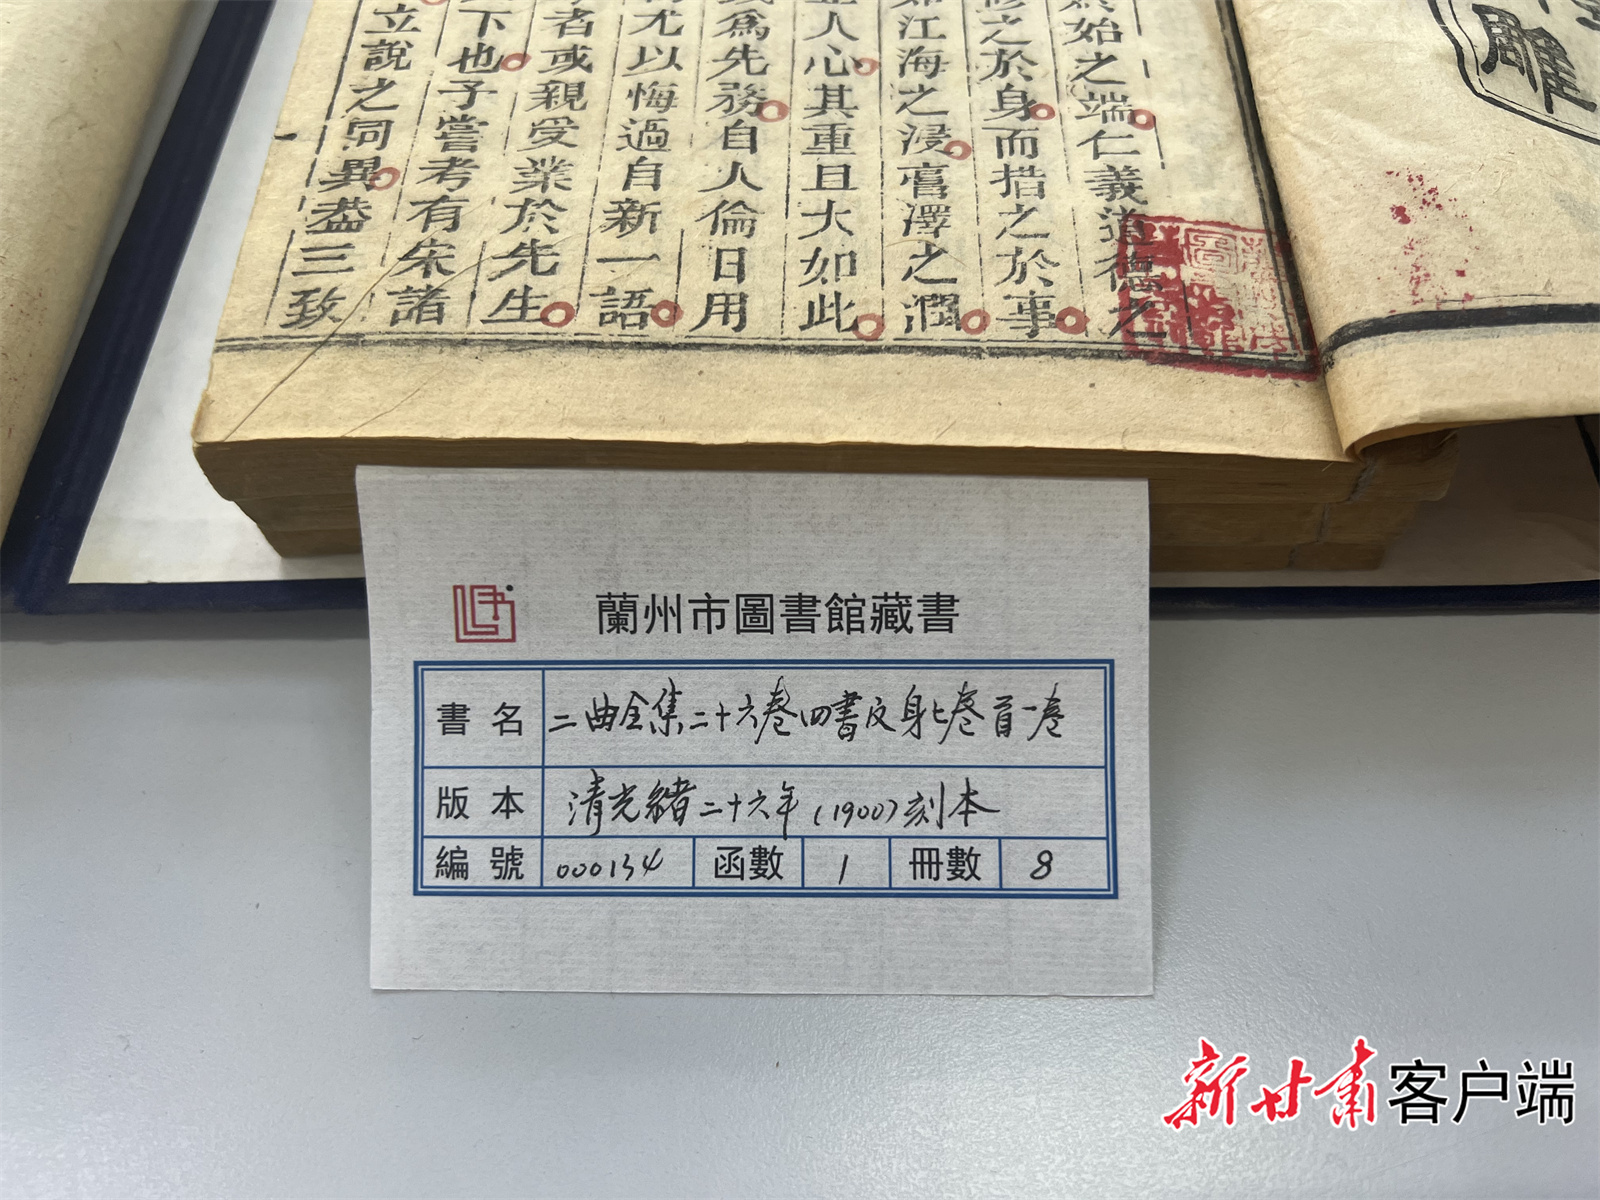 為始之端仁義道德之
修之於身而措之於事
如江海之浸膏澤之潤
正人心其重且大如此
為先務自人倫日用
尤以悔過自新一語
者或親受業於先生
下也子嘗考有宋諸
立說之同異葢三致
雕
蘭州市圖書館藏書
書名 二曲全集二十六卷四書反身七卷首一卷
版本 清光緒二十六年(1900)刻本
編號 000134 函數 1 冊數 8
新甘肃客户端